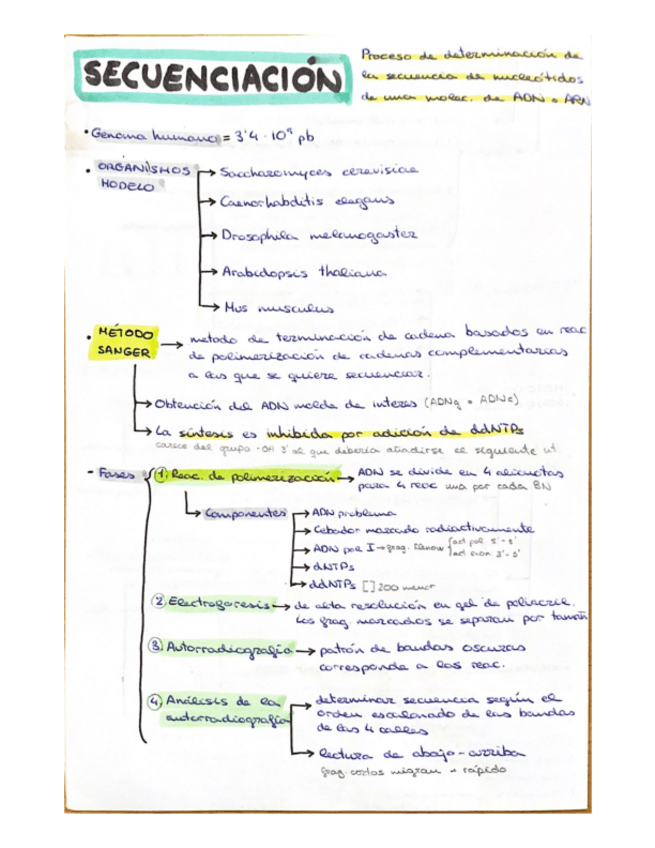 SECUENCIACIÓN
Proceso de determinación de
la secuencia de nucleótidos
de una molec. de ADN o ARN
• Genoma humano = 3'4 · 10⁹ pb
• ORGANISMOS
MODELO
→ Saccharomyces cerevisiae
→ Caenorhabditis elegans
→ Drosophila melanogaster
→ Arabidopsis thaliana
→ Mus musculus
• MÉTODO
SANGER
→ método de terminación de cadena basados en reac
de polimerización de cadenas complementarias
a las que se quiere secuenciar.
→ Obtención del ADN molde de interes (ADNg o ADNc)
→ La síntesis es inhibida por adición de ddNTPs
carece del grupo -OH 3' al que debería añadirse el siguiente nt
- Fases
① Reac. de polimerización → ADN se divide en 4 alicuotas
para 4 reac una por cada BN
→ Componentes
→ ADN problema
→ Cebador marcado radiactivamente
→ ADN pol I → frag. Klenow { act pol. 5'-3'
act exon. 3'-5'
→ dNTPs
→ ddNTPs [ ] 200 menor
② Electroforesis → de alta resolución en gel de poliacril.
Los frag. marcados se separan por tamañ
③ Autorradiografía → patrón de bandas oscuras
corresponde a las reac.
④ Análisis de la
autorradiografía
→ determinar secuencia según el
orden escalonado de las bandas
de las 4 calles
→ lectura de abajo-arriba
frag. cortos migran + rápido